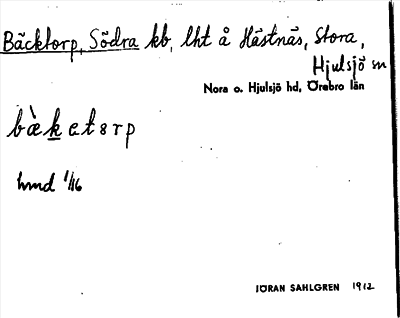 Bäcktorp, Södra kb, lht å Hästnäs, Stora,
Hjulsjö sn
Nora o. Hjulsjö hd, Örebro län
bæ̀ketɘrp
hmd 1/16
JÖRAN SAHLGREN 1912